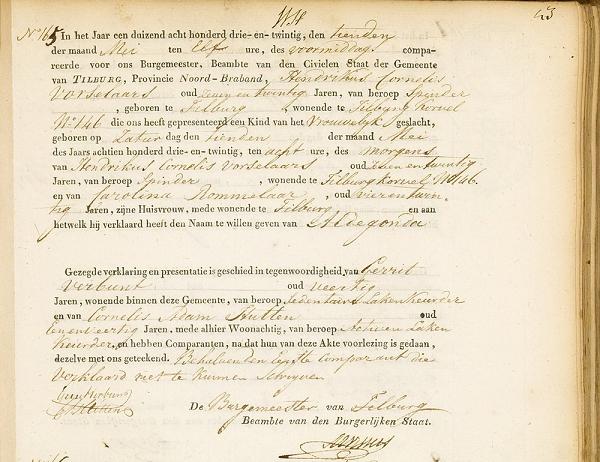 No 165
In het Jaar een duizend acht honderd drie- en- twintig, den tienden
der maand Mei ten Elf ure, des voormiddags compa-
reerde voor ons Burgemeester, Beambte van den Civielen Staat der Gemeente
van TILBURG, Provincie Noord-Braband, Hendrikus Cornelis
Vorselaars oud zeven en twintig Jaren, van beroep Spinder
, geboren te Tilburg , wonende te Tilburg Korvel
No 146 die ons heeft gepresenteerd een Kind van het Vrouwelyk geslacht,
geboren op Zatur dag den tienden der maand Mei
des Jaars achtien honderd drie-en-twintig, ten acht ure, des morgens
van Hendrikus Cornelis Vorselaars oud zeven en twintig
Jaren, van beroep Spinder , wonende te Tilburg Korvel No 146.
en van Carolina Rommelaar , oud vierentwin-
tig Jaren, zijne Huisvrouw, mede wonende te Tilburg en aan
hetwelk hij verklaard heeft den Naam te willen geven van Aldegonda
Gezegde verklaring en presentatie is geschied in tegenwoordigheid van Gerrit
Verbunt oud veertig
Jaren, wonende binnen deze Gemeente, van beroep Sedentaire Laken Keurder
en van Cornelis Adam Stutten oud
eenenveertig Jaren, mede alhier Woonachtig, van beroep Actieven Laken
Keurder, en hebben Comparanten, na dat hun van deze Akte voorlezing is gedaan,
dezelve met ons geteekend. Behalven den Eerste Comparant die
Verklaard niet te kunnen Schryven
De Burgemeester van Tilburg
Beambte van den Burgerlijken Staat.